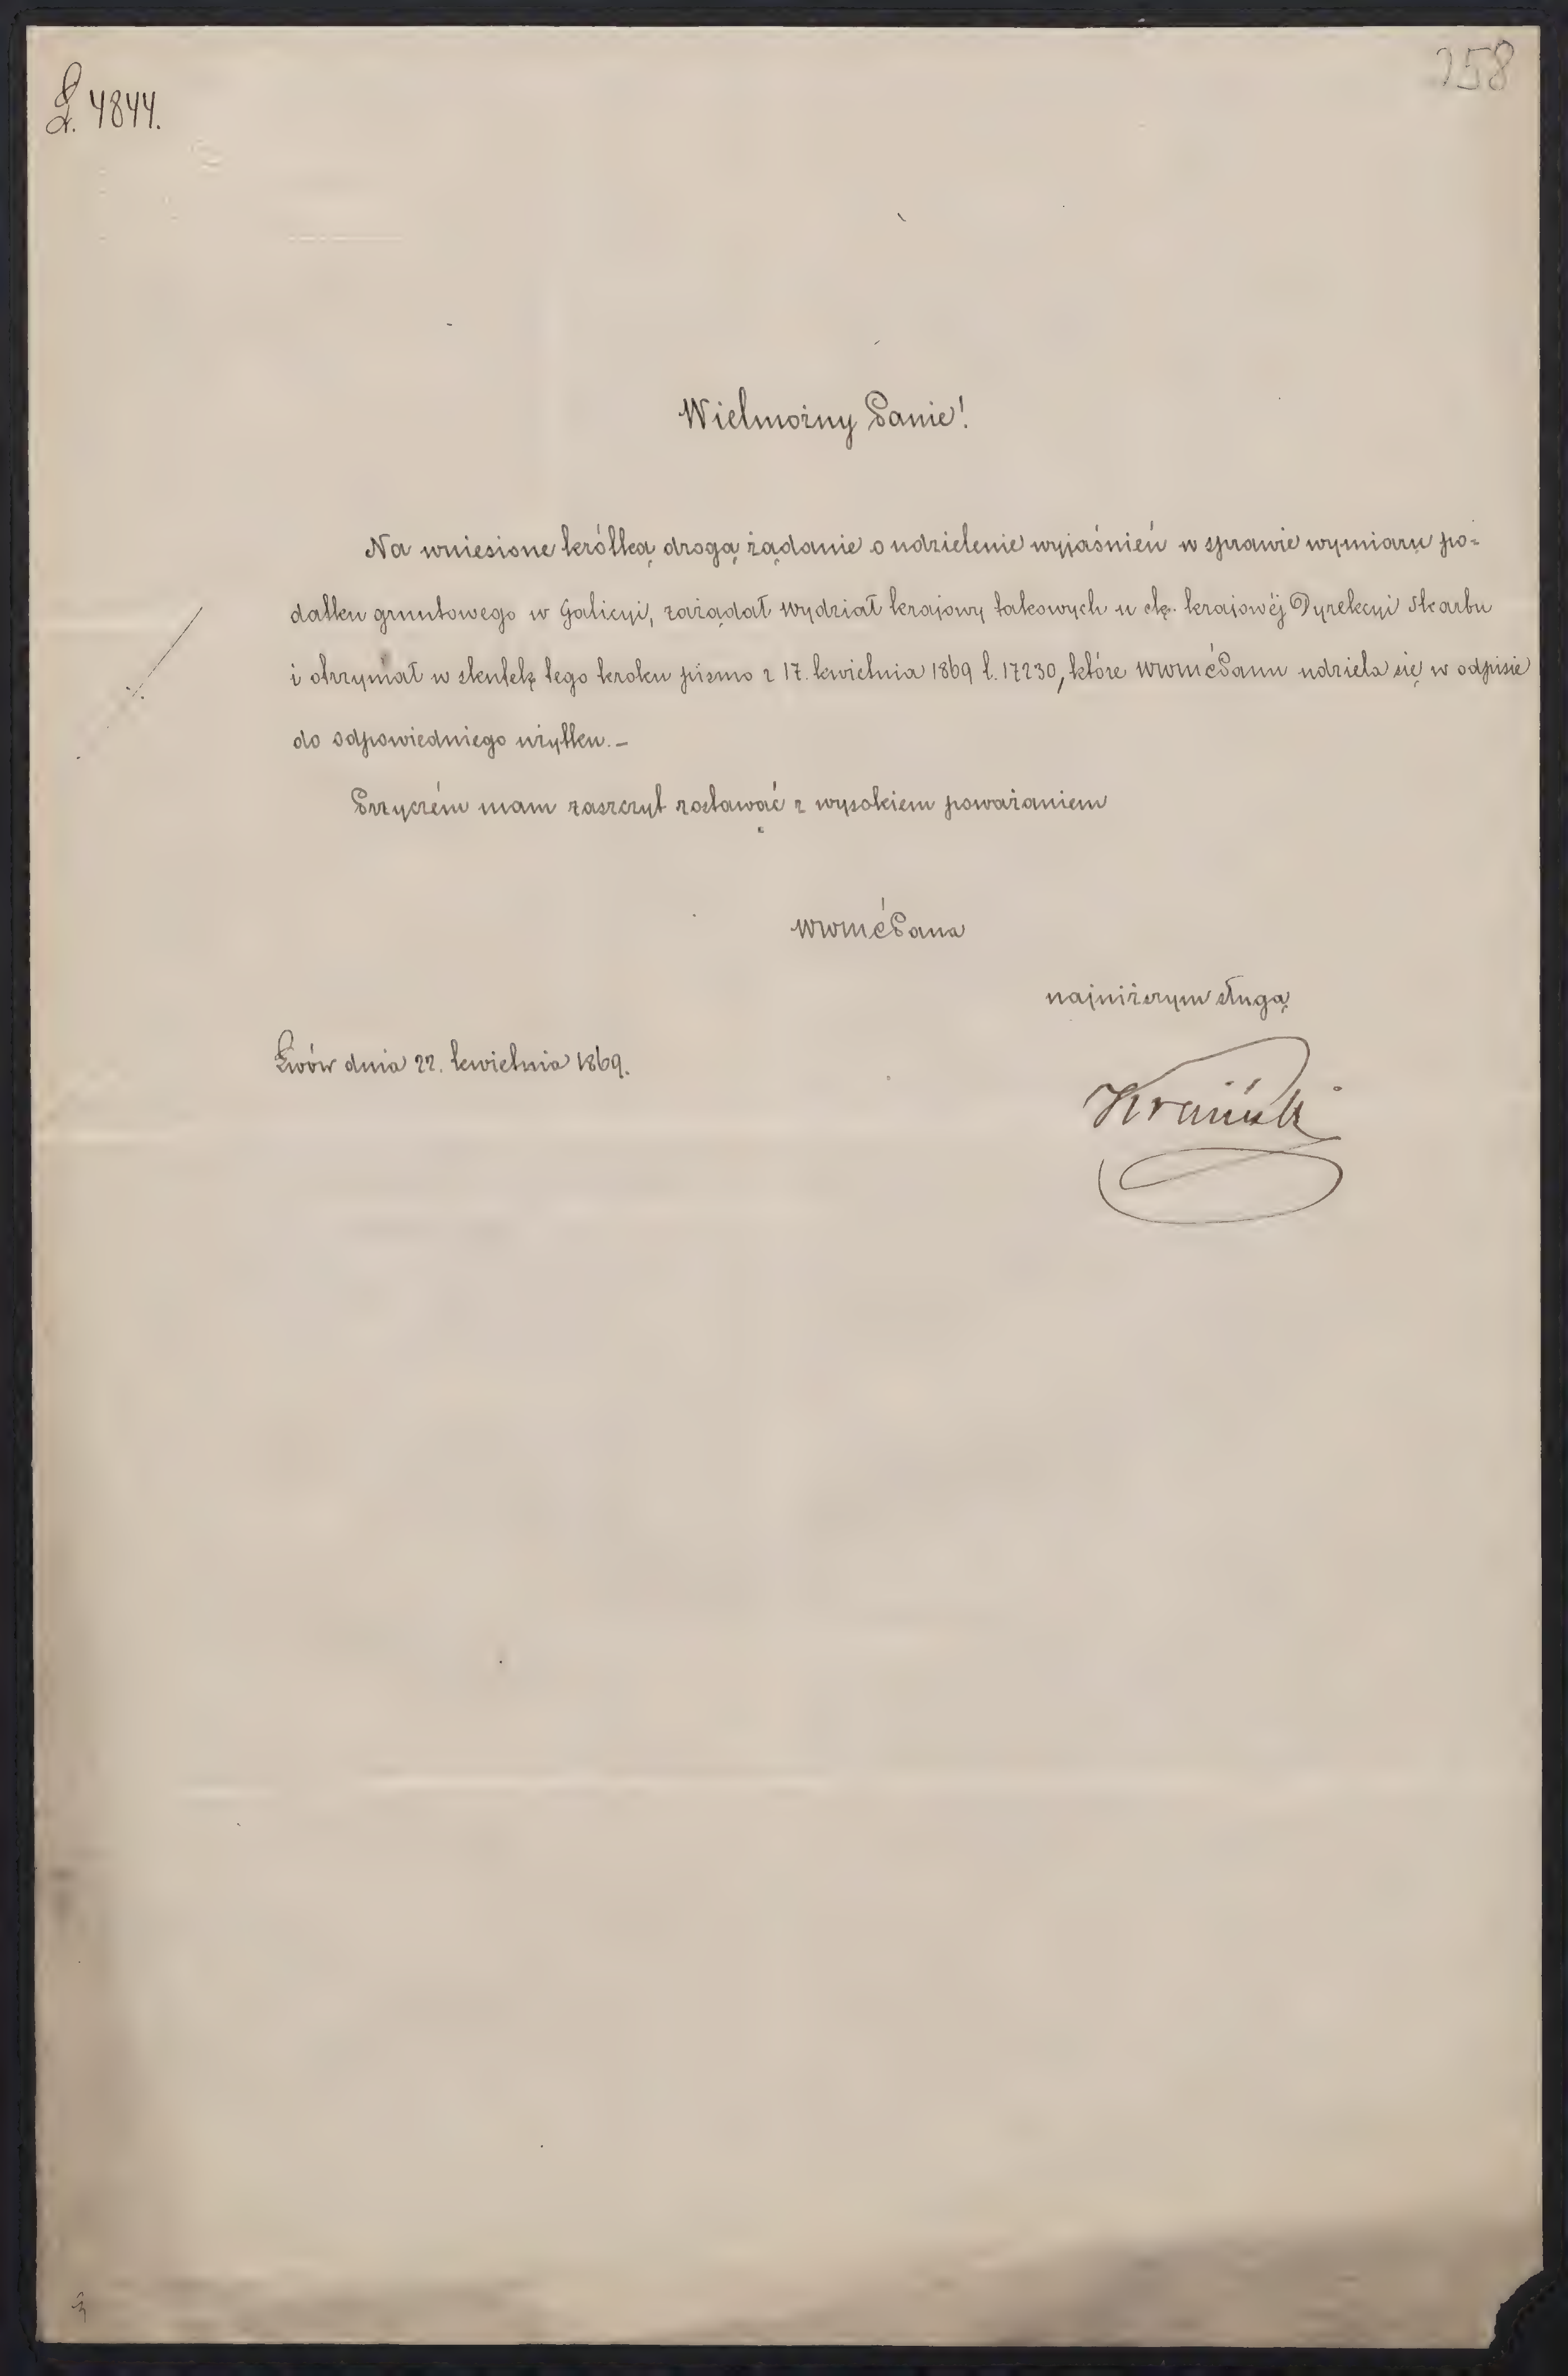 L. 4844.
258
Wielmożny Panie!
Na wniesione krótką drogą żądanie o udzielenie wyjaśnień w sprawie wymiaru po=
datku gruntowego w Galicyi, zażądał Wydział krajowy takowych u ck. krajowéj Dyrekcyi Skarbu
i otrzymał w skutek tego kroku pismo z 17. kwietnia 1869 l. 17230, które WWmćPanu udziela się w odpisie
do odpowiedniego użytku. –
Przyczém mam zaszczyt zostawać z wysokiem poważaniem
WWmćPana
najniższym sługą
Lwów dnia 22. kwietnia 1869.
Kraiński